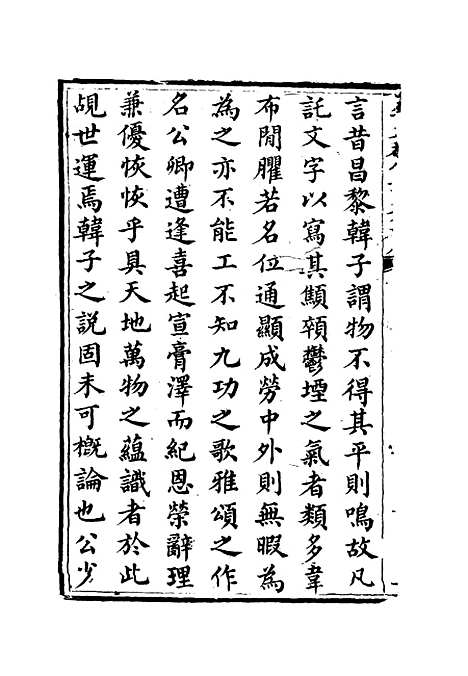 言昔昌黎韓子謂物不得其平則鳴故凡
託文字以寫其顑頷鬱堙之氣者類多韋
布閒臞若名位通顯成勞中外則無暇為
為之亦不能工不知九功之歌雅頌之作
名公卿遭逢喜起宣膏澤而紀恩榮辭理
兼優恢恢乎具天地萬物之蘊識者於此
覘世運焉韓子之説固未可概論也公少